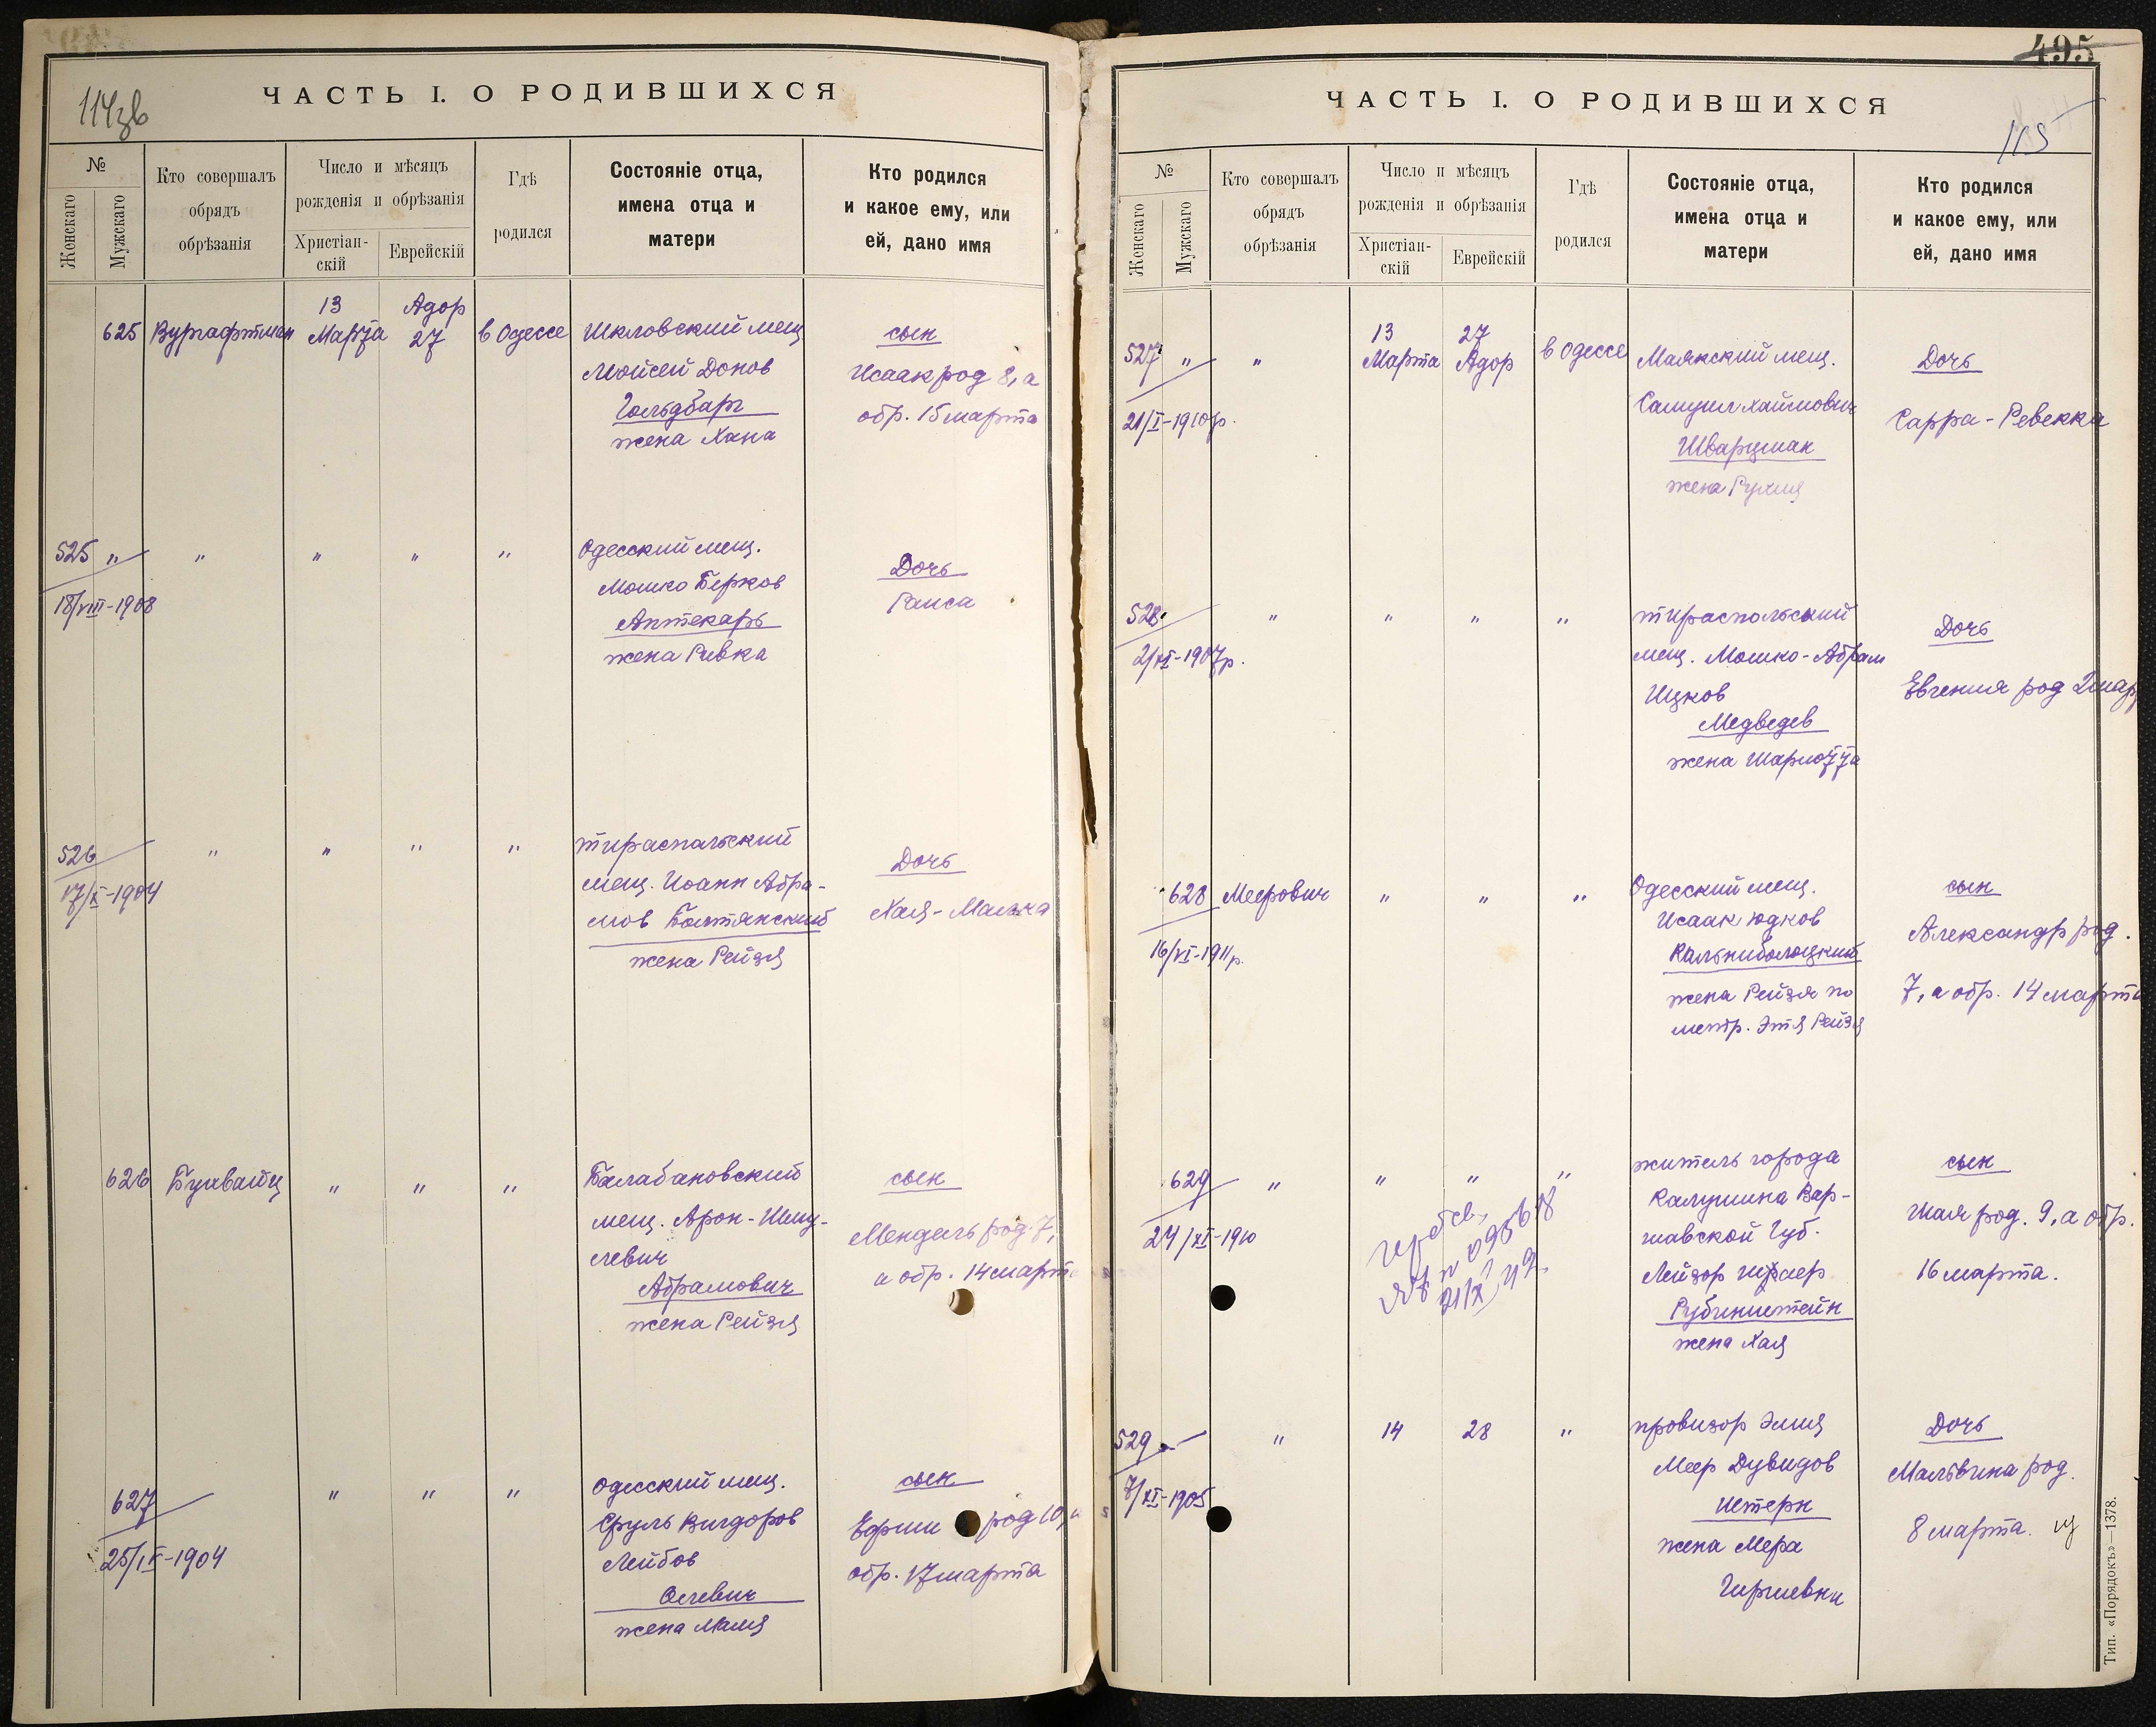 114зв
ЧАСТЬ I. О РОДИВШИХСЯ
№
Женскаго
Мужскаго
Кто совершалъ
обрядъ
обрѣзанія
Число и мѣсяцъ
рожденія и обрѣзанія
Христіан-
скій
Еврейскій
Гдѣ
родился
Состояніе отца,
имена отца и
матери
Кто родился
и какое ему, или
ей, дано имя
625 Вургафтман
13
Марта
Адор
27
в Одессе
Шкловский мещ
Мойсей Донов
Гольдбарг
жена Хана
сын
Исаак род 8, а
обр. 15 марта
525 " " " " "
18/VIII-1908
Одесский мещ.
Мошко Берков
Аптекарь
жена Ривка
Дочь
Раиса
526 " " " "
17/X-1904
тираспальский
мещ. Иоанн Абра-
мов Балтянский
жена Рейзя
Дочь
Хая-Малка
626 " " "
Балабановский
мещ. Арон-Шму-
левич
Абрамович
жена Рейзя
сын
Мендель род. 7,
а обр. 14 март
627 " " "
25/IX-1904
Одесский мещ.
Сруль Вигдоров
Лейбов
Олевич
жена Маля
сын
Ефим род 10, а
обр. 17 марта
495
115
ЧАСТЬ I. О РОДИВШИХСЯ
№
Женскаго
Мужскаго
Кто совершалъ
обрядъ
обрѣзанія
Число и мѣсяцъ
рожденія и обрѣзанія
Христіан-
скій
Еврейскій
Гдѣ
родился
Состояніе отца,
имена отца и
матери
Кто родился
и какое ему, или
ей, дано имя
527 " "
21/I-1910р.
13
Марта
27
Адор
в Одессе
Маякский мещ.
Самуил Хаймович
Шварцман
жена Рухля
Дочь
Сарра-Ревекка
528 " " " "
2/XI-1907р.
тираспольский
мещ. Мошко-Абрам
Ицков
Медведев
жена Шарлотта
Дочь
Евгения род 2 мар
628 Меерович " " "
16/VI-1911р.
Одесский мещ.
Исаак Юдков
Кальниболоцкий
жена Рейзя по
метр. Этя Рейзя
сын
Александр род.
7, а обр. 14 марта
629 " " " "
24/XI-1910
житель города
Калушина Вар-
шавской Губ.
Лейзор
Рубинштейн
жена Хая
сын
Шая род. 9, а обр.
16 марта.
529 "
7/XI-1905
14 28 "
провизор Элия
Меер Дувидов
Штерн
жена Мера
Гиршевни
Дочь
Мальвина род.
8 марта.
Тип. «Порядокъ»—1378.